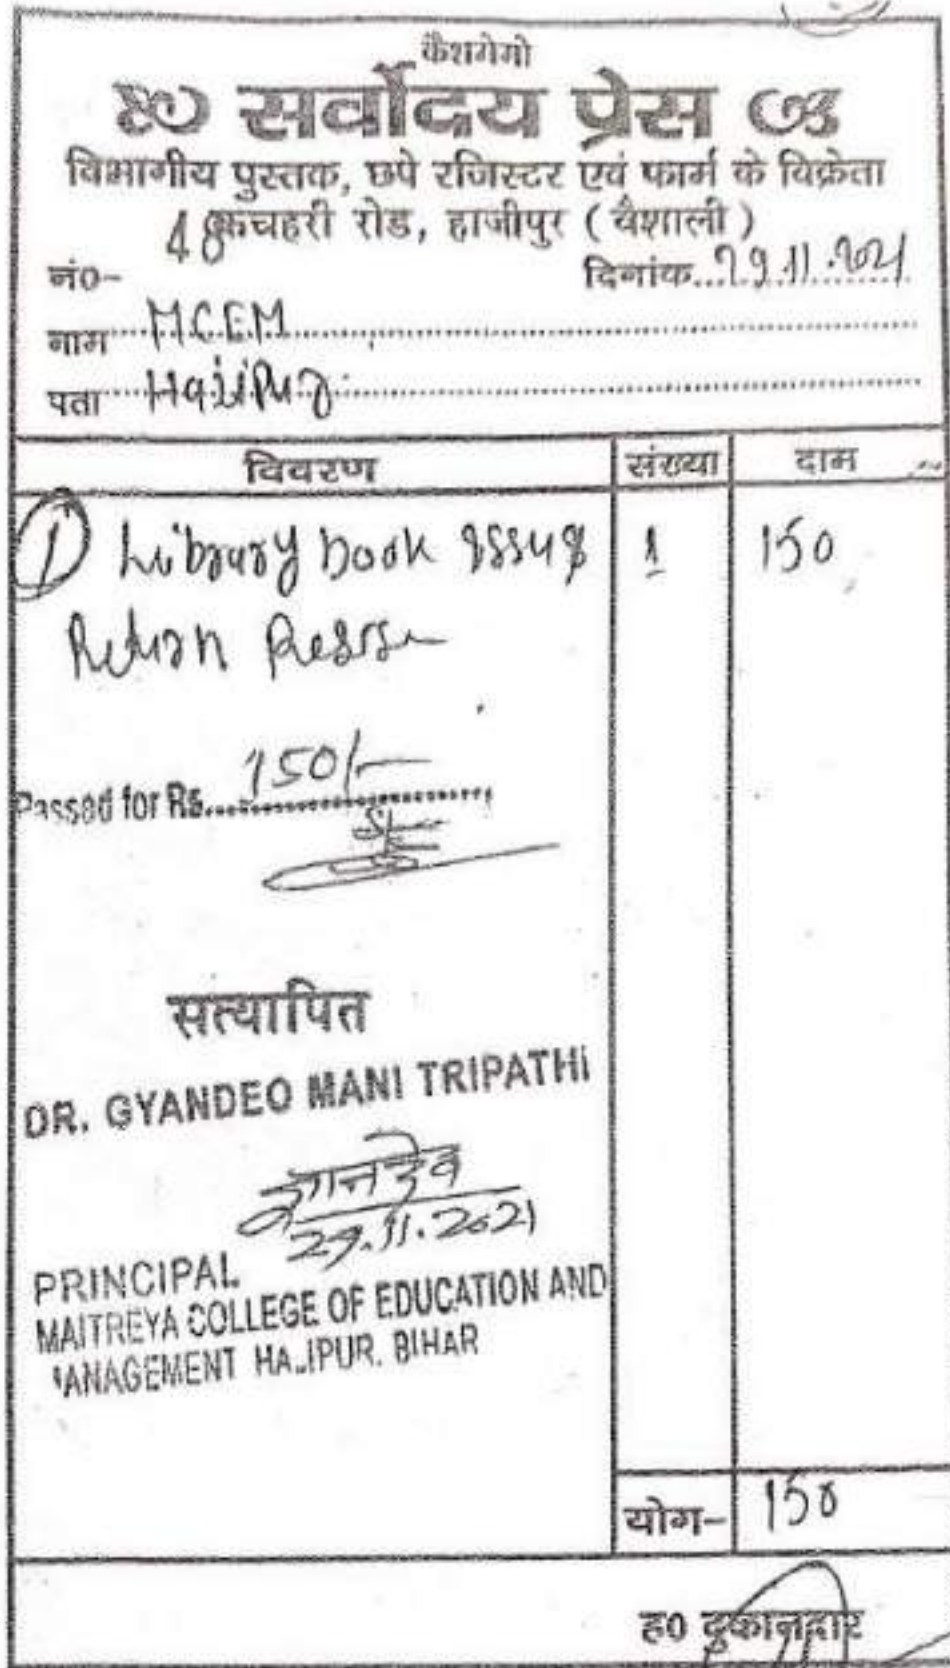 कैशमेमो
सर्वोदय प्रेस
विभागीय पुस्तक, छपे रजिस्टर एवं फार्म के विक्रेता
कचहरी रोड, हाजीपुर (वैशाली)
नं०- 48 दिनांक...29.11.2021
नाम MCEM
पता Hajipur
विवरण संख्या दाम
1 Library book 1 150
Return
Passed for Rs. 150/-
सत्यापित
DR. GYANDEO MANI TRIPATHI
ज्ञानदेव
29.11.2021
PRINCIPAL
MAITREYA COLLEGE OF EDUCATION AND
MANAGEMENT HAJIPUR. BIHAR
योग- 150
ह० दुकानदार